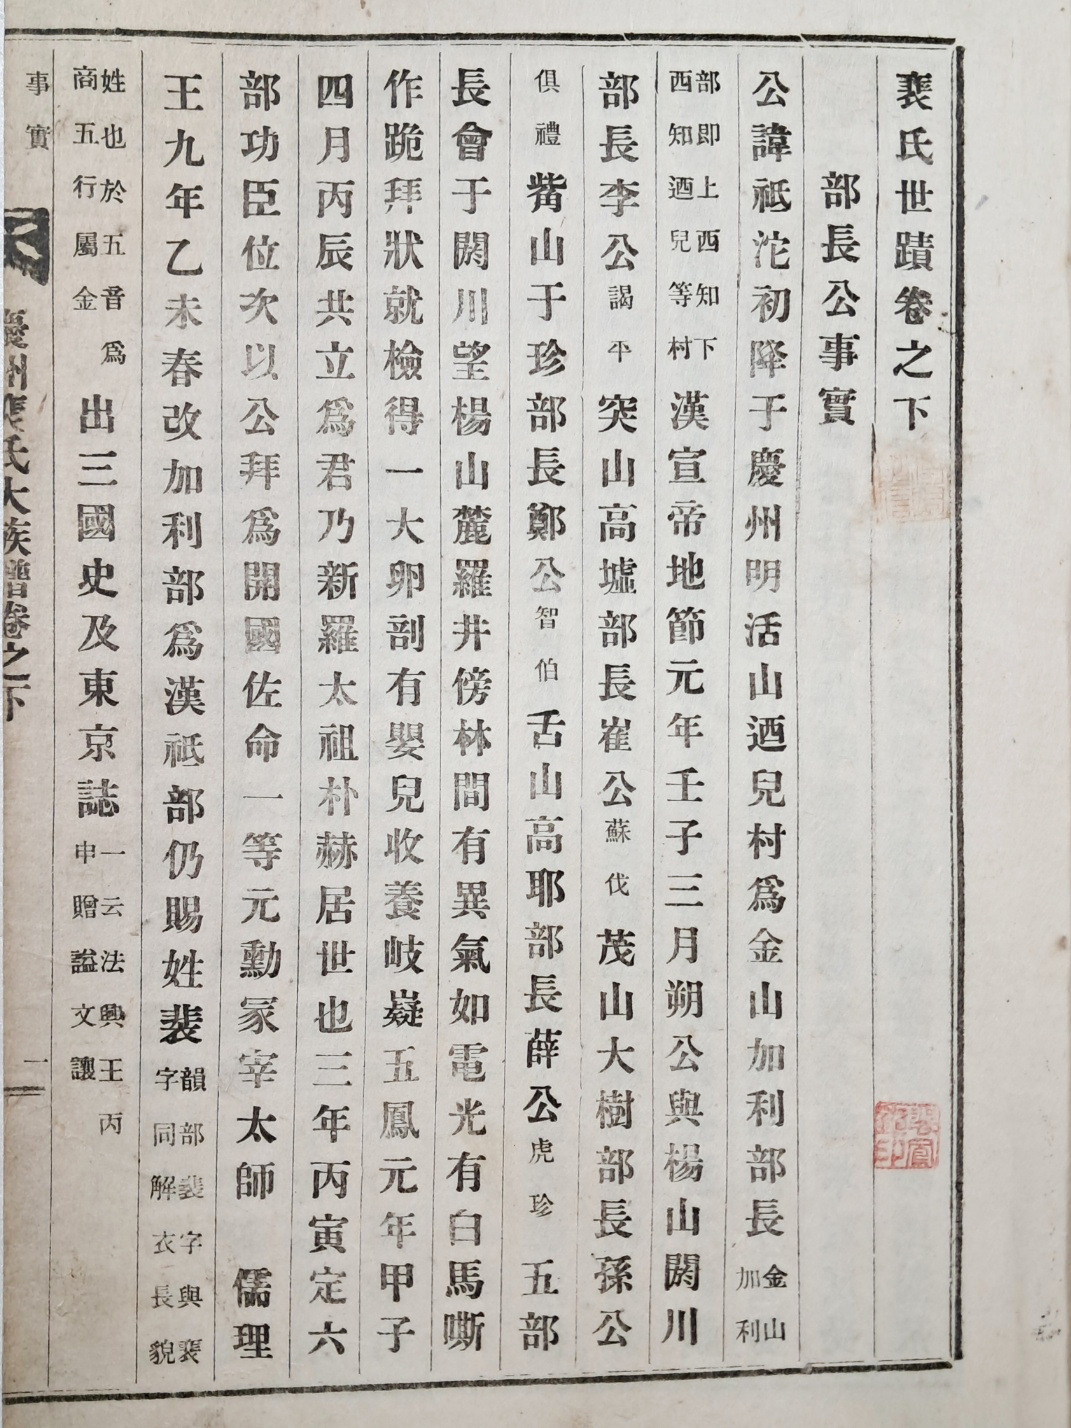 裵氏世蹟卷之下
部長公事實
公諱祗沱初降于慶州明活山迺兒村爲金山加利部長金山加利
部即上西知下西知迺兒等村漢宣帝地節元年壬子三月朔公與楊山閼川
部長李公謁平突山高墟部長崔公蘇伐茂山大樹部長孫公
俱禮觜山于珍部長鄭公智伯舌山高耶部長薛公虎珍五部
長會于閼川望楊山麓羅井傍林間有異氣如電光有白馬嘶
作跪拜狀就檢得一大卵剖有嬰兒收養岐嶷五鳳元年甲子
四月丙辰共立爲君乃新羅太祖朴赫居世也三年丙寅定六
部功臣位次以公拜爲開國佐命一等元勳冢宰太師　儒理
王九年乙未春改加利部爲漢祗部仍賜姓裴韻部裴字與裵字同解衣長貌
姓也於五音爲商五行屬金出三國史及東京誌一云法興王丙申贈謚文讓
事實
慶州裵氏大族譜卷之下
一